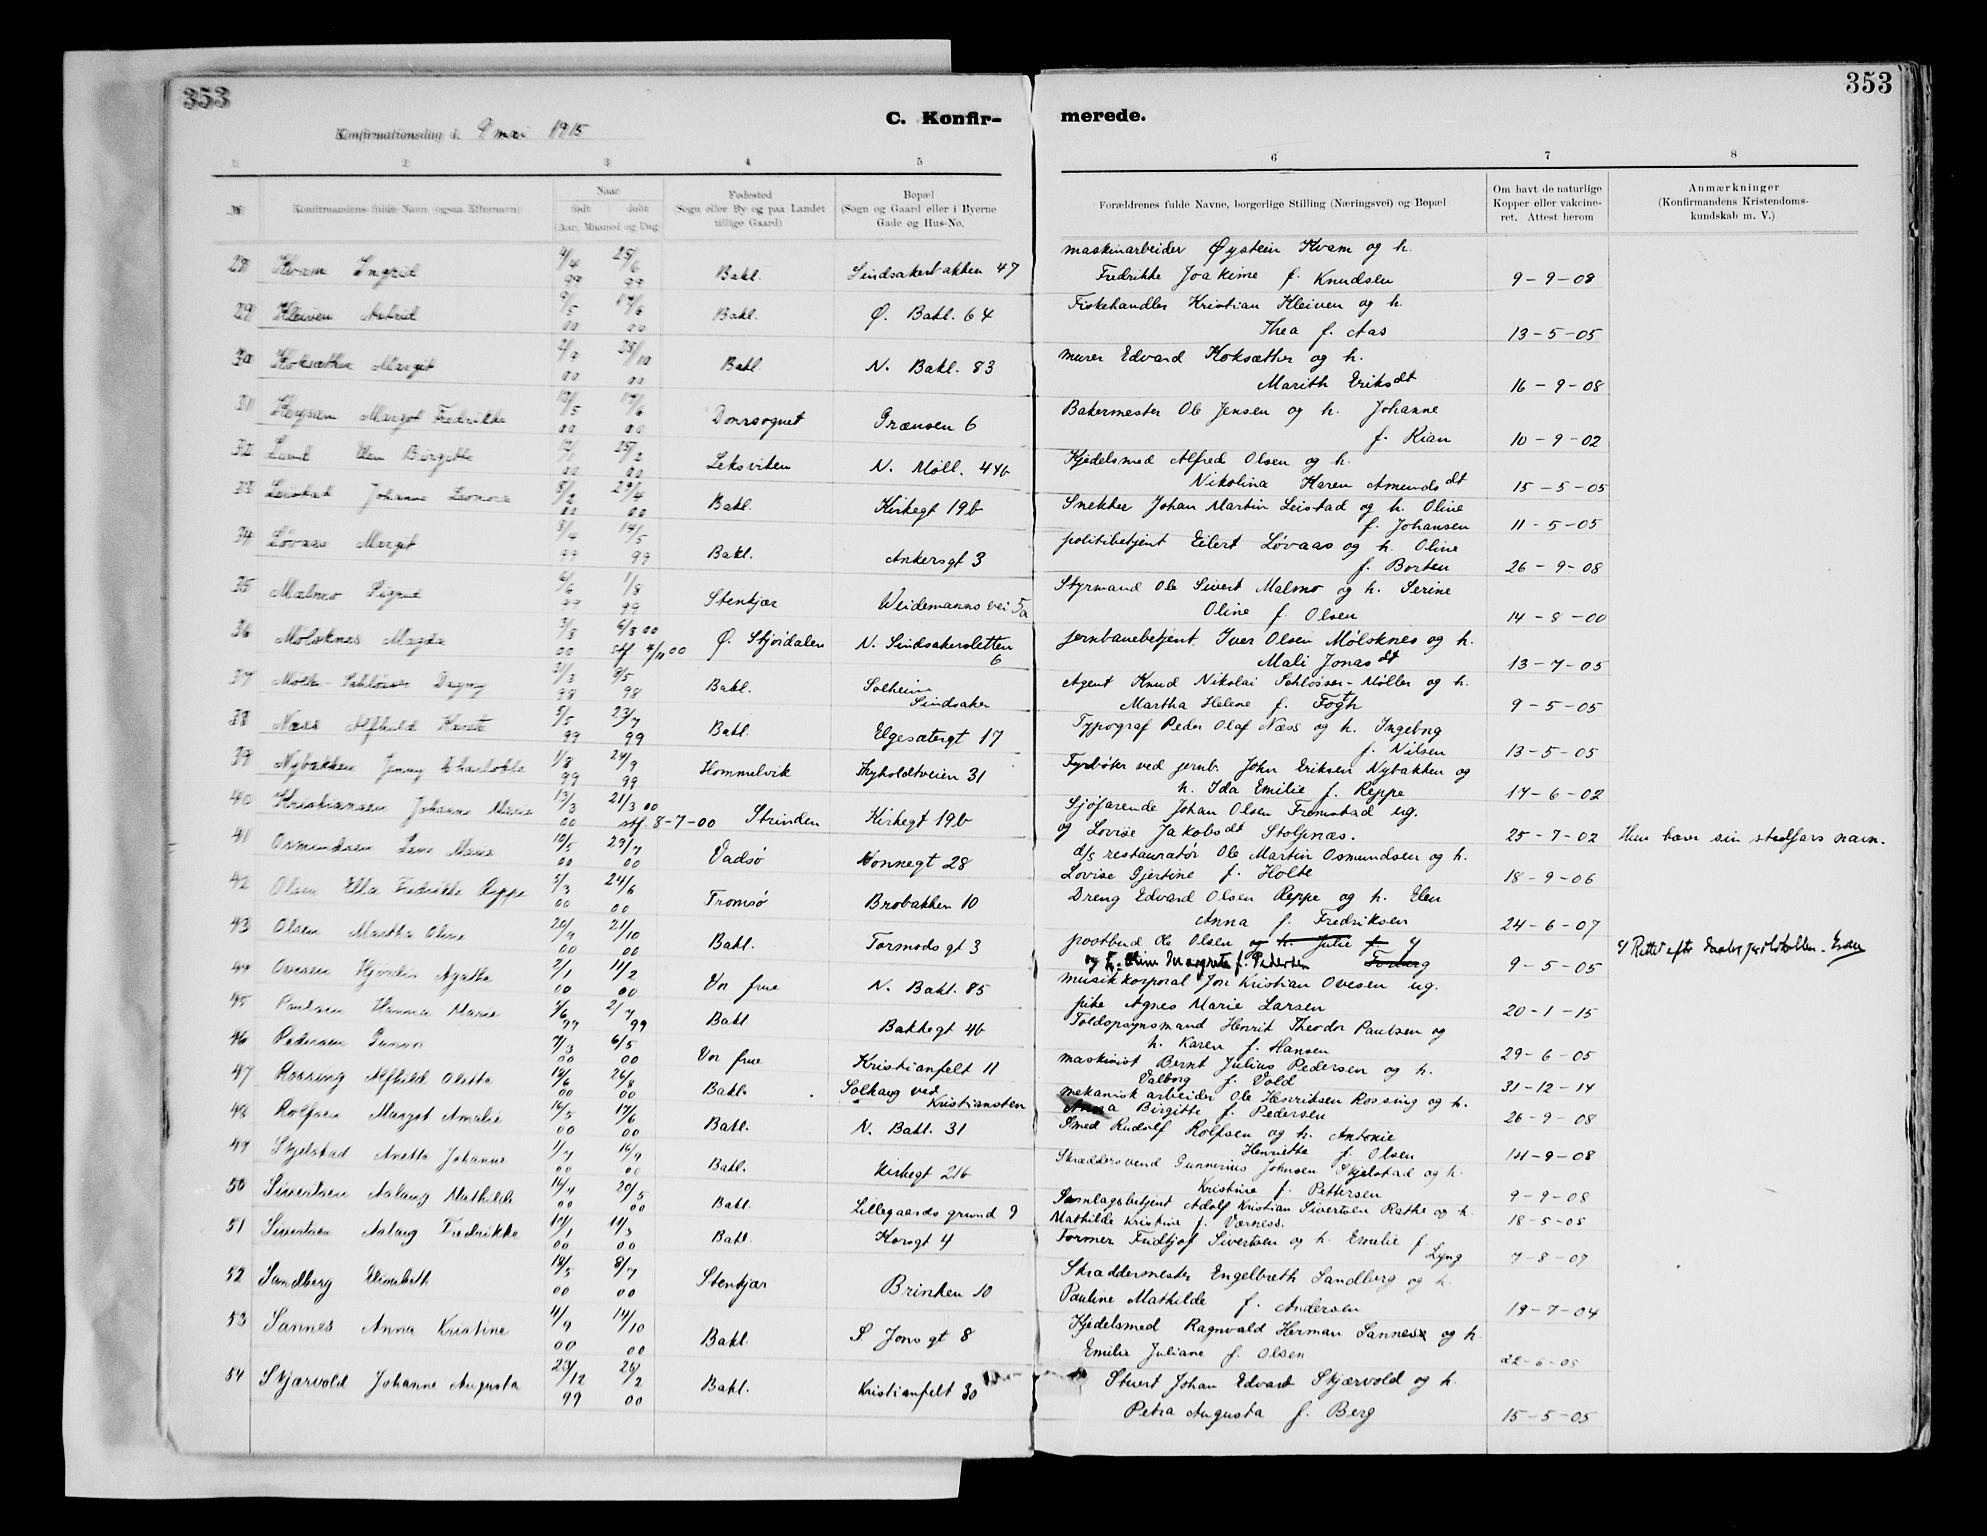 353
353
C. Konfir- merede.
Konfirmationsdag d. 9 mai 1915
1 2 3 4 5 6 7 8
№
Konfirmandens fulde Navn (ogsaa Efternavn)
Naar
født døbt
(Aar, Maaned og Dag)
Fødested
(Sogn eller By og paa Landet
tillige Gaard)
Bopæl
(Sogn og Gaard eller i Byerne
Gade og Hus-No.
Forældrenes fulde Navne, borgerlige Stilling (Næringsvei) og Bopæl
Om havt de naturlige
Kopper eller vakcine-
ret. Attest herom
Anmærkninger
(Konfirmandens Kristendoms-
kundskab m. V.)
28 Kvam Ingrid 4/4 99 25/6 99 Bakl. Sindsakerbakken 47 maskinarbeider Øystein Kvam og h.
Fredrikke Joakime f. Knudsen 9-9-08
29 Kleiven Astrid 9/5 00 17/6 00 Bakl. Ø. Bakl. 64 Fiskehandler Kristian Kleiven og h.
Thea f. Aas 13-5-05
30 Koksæther Margit 2/9 00 28/10 00 Bakl. N. Bakl. 83 murer Edvard Koksæther og h.
Marith Eriksdt 16-9-08
31 Margot Fredrikke 00 17/6 00 Domsognet Grænsen 6 Bakermester Ole Jensen og h. Johanne
f. Kian 10-9-02
32 Lund Elen Birgitte 00 25/2 00 Leksviken N. Møll. 44b Kjedelsmed Alfred Olsen og h.
Nikolina Karen Amundsdt 15-5-05
33 Leistad Johanne Leonora 8/2 00 29/4 00 Bakl. Kirkegt 19b Snekker Johan Martin Leistad og h. Oline
f. Johansen 11-5-05
34 Løvaas Margit 3/4 99 14/5 99 Bakl. Ankersgt 3 politibetjent Eilert Løvaas og h. Oline
f. Borten 26-9-08
35 Malmo Sigrid 6/6 99 1/8 99 Stenkjær Weidemannsvei 5a Styrmand Ole Sivert Malmo og h. Serine
Oline f. Olsen 14-8-00
36 Mølsknes Magda 3/3 00 6/3 00 stf 4/11 00 Ø. Stjørdalen N. Sindsakersletten 6 jernbanebetjent Iver Olsen Mølsknes og h.
Mali Jonasdt 13-7-05
37 Møller-Schløsser Dagny 3/3 98 8/5 98 Bakl. Solheim Sindsaker Agent Knud Nikolai Schløsser-Møller og h.
Martha Helene f. Fogh 9-5-05
38 Næss Alfhild 5/5 99 23/7 99 Bakl. Elgesætergt 17 Typograf Peder Olaf Næss og h. Ingeborg
f. Nilsen 13-5-05
39 Nybakken Jenny Charlotte 1/8 99 24/9 99 Hommelvik Thyholdtveien 31 Fyrbøter ved jernb. John Eriksen Nybakken og
h. Ida Emilie f. Reppe 14-6-02
40 Kristiansen Johanne Marie 13/3 00 21/3 00 stf. 8-7-00 Strinden Kirkegt 19b Sjøfarende Johan Olsen Fremstad ug.
og Lovise Jakobsdt Stolpnæs. 25-7-02 Hun bærer sin stedfars navn.
41 Osmundsen Lene Marie 10/5 00 29/7 00 Vadsø Nonnegt 28 d/s restauratør Ole Martin Osmundsen og h.
Lovise Gjertine f. Holte 18-9-06
42 Olsen Ella Fredrikke Reppe 5/3 00 24/6 00 Tromsø Brobakken 10 Dreng Edvard Olsen Reppe og h. Elen
Anna f. Fredriksen 24-6-07
43 Olsen Martha Oline 20/9 00 21/10 00 Bakl. Tormodsgt 3 postbud Ole Olsen og h. Julie f.
og h. Margrete f. Pedersen 9-5-05 Rettet efter
44 Ovesen Hjørdis Agathe 2/1 00 11/2 00 Vor frue N. Bakl. 85 musikkorporal Jon Kristian Ovesen ug.
pike Agnes Marie Larsen 20-1-15
45 Paulsen Hanna Marie 5/6 99 2/7 99 Bakl Bakkegt 4b Toldopsynsmand Henrik Theodor Paulsen og
h. Karen f. Hansen 29-6-05
46 Pedersen Gunvor 7/3 00 6/5 00 Vor frue Kristianfelt 11 maskinist Bernt Julius Pedersen og h.
Valborg f. Vold 31-12-14
47 Rossing Alfhild Oletta 14/6 00 26/8 00 Bakl. Solhaug ved Kristiansten mekanisk arbeider Ole Henriksen Rossing og h.
Anna Birgitte f. Pedersen 26-9-08
48 Rolfsen Margot Amalie 16/5 00 17/6 00 Bakl. N. Bakl. 31 Smed Rudolf Rolfsen og h. Antonie
Henriette f. Olsen 14-9-08
49 Skjelstad Anetta Johanne 1/7 00 16/9 00 Bakl. Kirkegt 21b Skræddersvend Gunnerius Johnsen Skjelstad og h.
Kristine f. Pettersen 9-9-08
50 Sivertsen Aslaug Mathilde 14/4 00 20/5 00 Bakl. Lillegaards grund 9 Samlagsbetjent Adolf Kristian Sivertsen Rathe og h.
Mathilde Kristine f. Værness. 18-5-05
51 Sivertsen Aslaug Fredrikke 14/1 00 11/3 00 Bakl. Korsgt 4 Former Fridtjof Sivertsen og h. Emelie f.
Lyng 7-8-07
52 Sandberg Elisabeth 14/5 00 8/7 00 Stenkjær Brinken 10 Skræddermester Engelbreth Sandberg og h.
Pauline Mathilde f. Andersen 19-7-04
53 Sannes Anna Kristine 4/9 00 14/10 00 Bakl. S Jonsgt 8 Kjedelsmed Ragnvald Herman Sannes og h.
Emilie Juliane f. Olsen 22-6-05
54 Skjærvold Johanne Augusta 23/12 99 26/2 00 Bakl. Kristianfelt 30 Stuert Johan Edvard Skjærvold og h.
Petra Augusta f. Berg 15-5-05